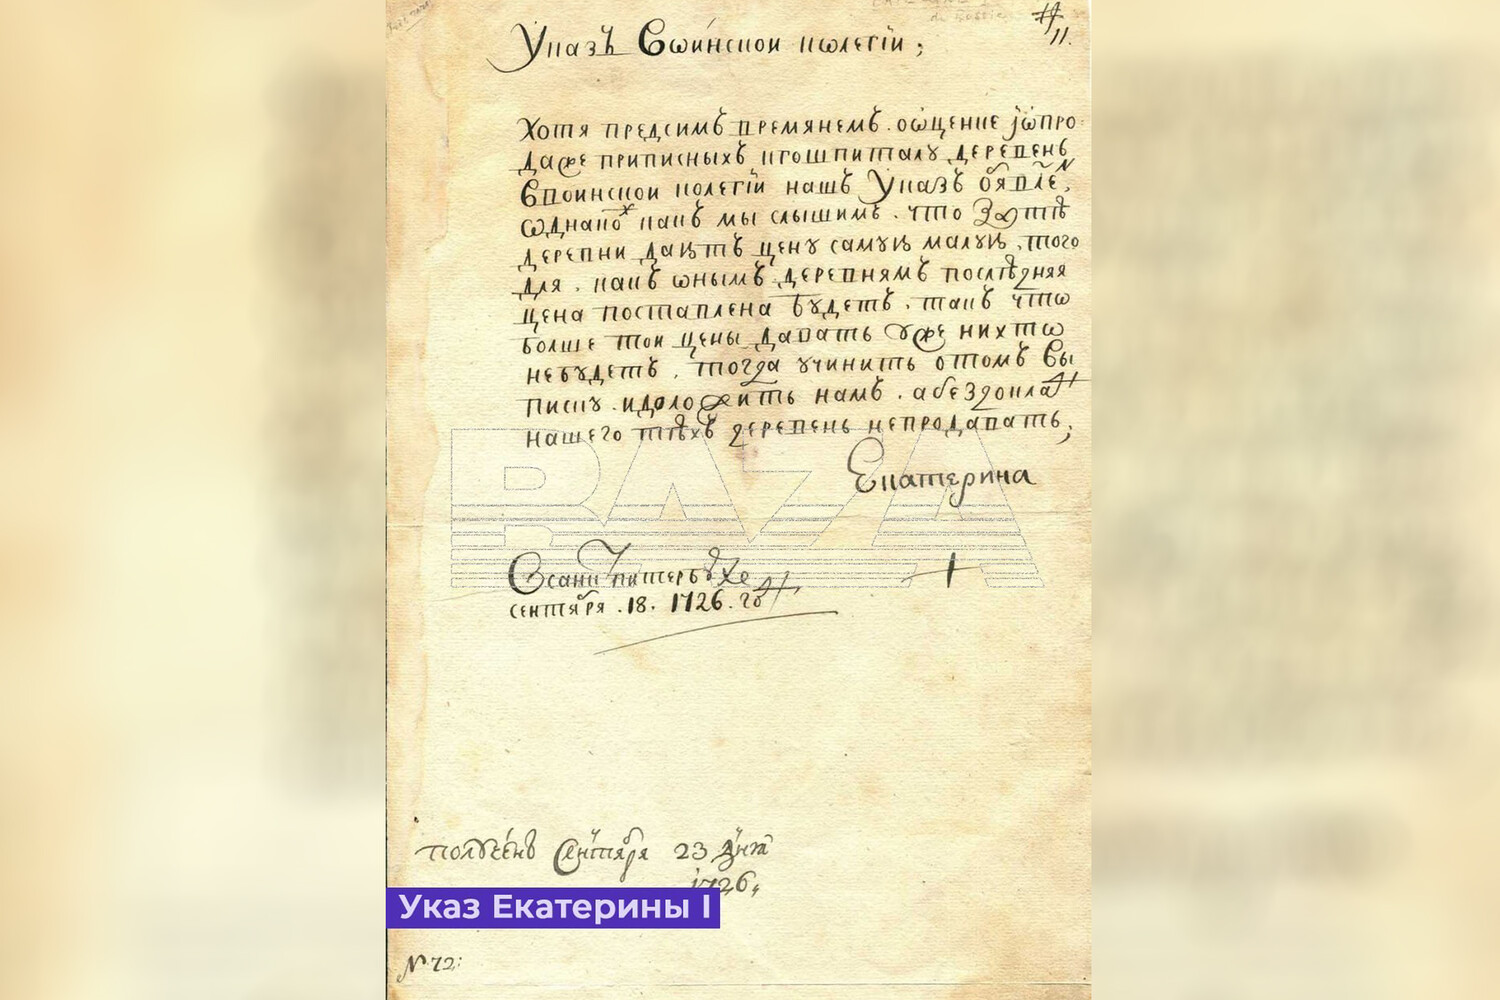 11.
Указъ Воинскои колегіи ;
Хотя предсимъ времянемъ . оѡценке јѡпро
даже приписныхъ кгошпиталу деревень
Ввоинскои колегіи нашъ Указъ
ѡднако какъ мы слышимъ . что Затѣ
деревни даютъ цену самую малую , того
для . какъ ѡнымъ деревнямъ послѣдняя
цена поставлена будетъ . такъ чтѡ
болше тои цены давать уже нихтѡ
небудетъ , тогда учинить отомъ Вы
писку . идоложить намъ . а бездокла
нашего тѣхъ деревень непродавать ;
Екатерина
BAZA
Всанктпитербурхе
сентября . 18 . 1726 . го
полученъ Сентября 23 дня
1726,
Указ Екатерины I
№ 72: